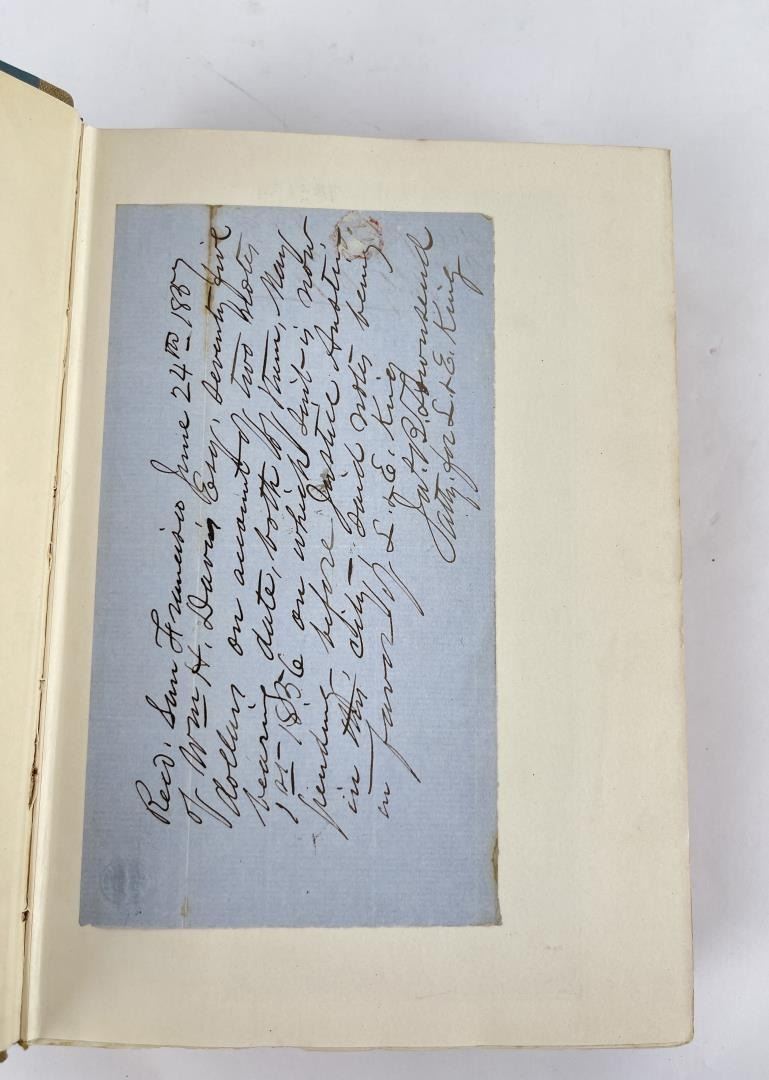 Recd. San Francisco June 24th 1857
of Wm H. Davis Esq. Seventy five
dollars on account of two notes
bearing date, both of them, May
1st 1856 on which suit is now
pending before Justice Austin
in this city - said notes being
in favor of L. & E. King
Jas. B. Townsend
Atty. for L. & E. King